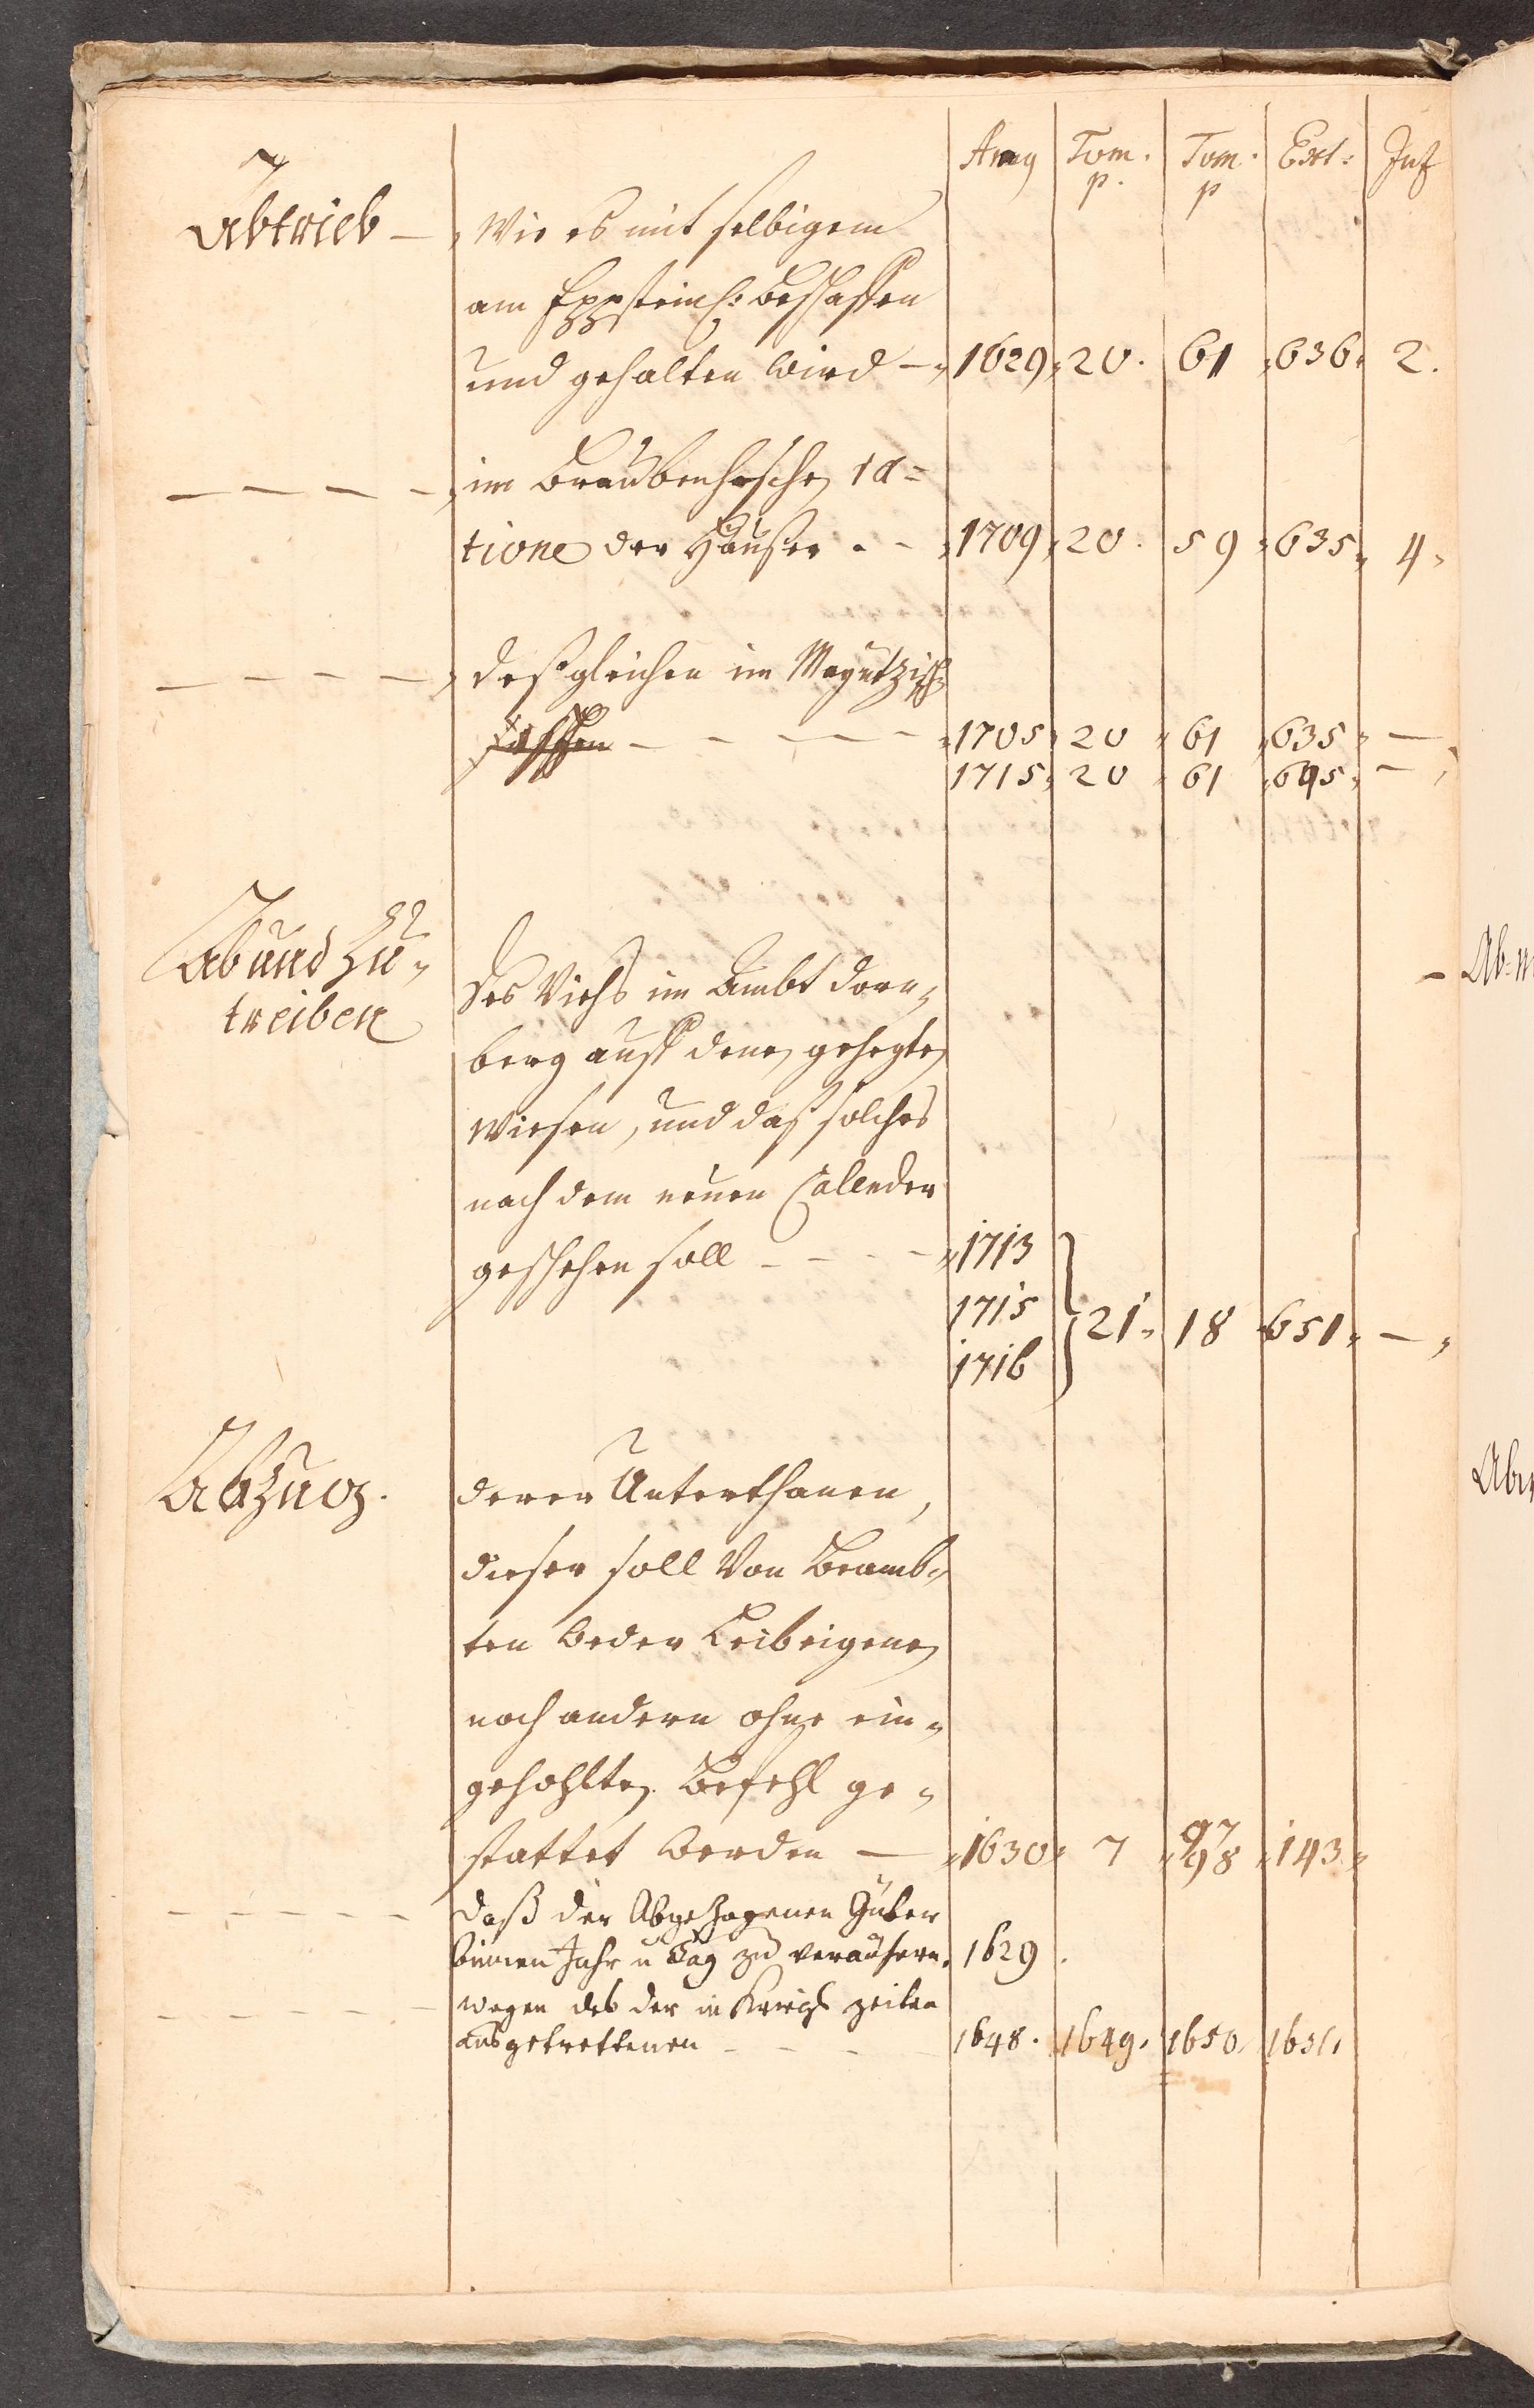 Anno Tom. p. Tom. p Ext: Inf
Abtrieb — Wie es mit selbigem
am Eppsteinl: beschaffen
und gehalten wird — 1629, 20. 61 636. 2.
— — — — im Braubachische, ra=
tione der Häußer - - 1709, 20. 59 635, 4,
— — — — deßgleichen im Mayntzisch
— — — — 1705, 20 61 635, —
1715, 20 61 695, —
Ab und Zu-
treiben
des Viehs im Ambt Dorn-
berg auff denen gehegten
Wiesen, und daß solches
nach dem neuen Callender
geschehen soll - - - 1713
1715 21. 18 651, —
1716
Abzug. derer Unterthanen,
dieser soll von Beamb-
ten weder Leibeigenen
noch andern ohne ein-
gehohlten Befehl ge-
stattet werden — 1630, 7 97 98 143,
— — — — — daß der Abgezogenen Güter
binnen Jahr u Tag zu veräusern. 1629.
— — — — — wegen deb der in Kriegs zeiten
ausgetrettenen - - - 1648. 1649. 1650. 1651.
- Ab=